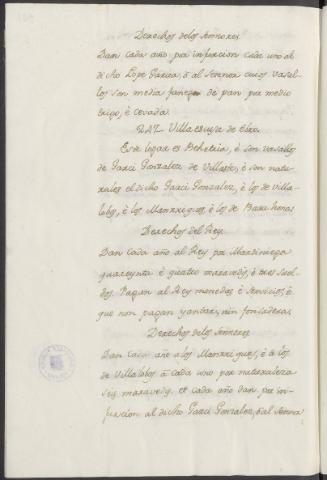 Derechos delos Sennores.
Dan cada año por infurcion cada uno al
dicho Lope Garcia, ò al Sennor cuios vasal-
los son media fanega de pan por medio
trigo, è cevada.
Villaescusa de Ebro.
Este logar es Behetria, è son vasallos
de Garci Gonzalez de è son natu-
rales el dicho Garci Gonzalez, è los de Villa-
lobos, è los Manrriques, è los de
Derechos del Rey
Dan cada año al Rey por Martiniega
quarenta è quatro maravedis, è tres suel-
dos. Pagan al Rey monedas è servicios, è
que non pagan yantar, nin fonsadera.
Derechos delos Sennores
Dan cada año alos Manrriques, è à los
de Villalobos à cada uno por naturaleza
seis maravedis, et cada año dan por in-
furcion al dicho Garci Gonzalez, ò al Sennor